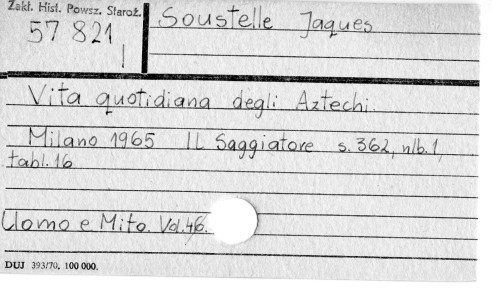 Zakł. Hist. Powsz. Staroż.
57 821
I
Soustelle Jaques
Vita quotidiana degli Aztechi.
Milano 1965 IL Saggiatore s. 362, nlb. 1,
tabl. 16
Uomo e Mito. Vol. 46.
DUJ 393/70. 100 000.